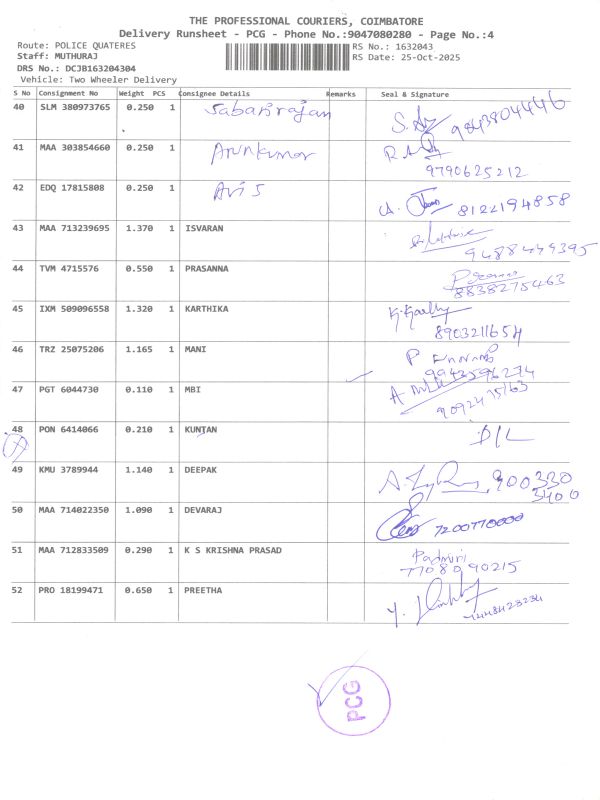 THE PROFESSIONAL COURIERS, COIMBATORE
Delivery Runsheet - PCG - Phone No.:9047080280 - Page No.:4
Route: POLICE QUATERES RS No.: 1632043
Staff: MUTHURAJ RS Date: 25-Oct-2025
DRS No.: DCJB163204304
Vehicle: Two Wheeler Delivery
S No Consignment No Weight PCS Consignee Details Remarks Seal & Signature
40 SLM 380973765 0.250 1 Sabarirajan 9843804446
41 MAA 303854660 0.250 1 Arunkumar
9790625212
42 EDQ 17815808 0.250 1 Avi S 8122194858
43 MAA 713239695 1.370 1 ISVARAN
9488449395
44 TVM 4715576 0.550 1 PRASANNA
8838275463
45 IXM 509096558 1.320 1 KARTHIKA
8903211654
46 TRZ 25075206 1.165 1 MANI
9943596274
47 PGT 6044730 0.110 1 MBI
9092435163
48 PON 6414066 0.210 1 KUNTAN D/L
49 KMU 3789944 1.140 1 DEEPAK 900330
3400
50 MAA 714022350 1.090 1 DEVARAJ 7200770000
51 MAA 712833509 0.290 1 K S KRISHNA PRASAD Padmini
7708090215
52 PRO 18199471 0.650 1 PREETHA
7448423234
PCG